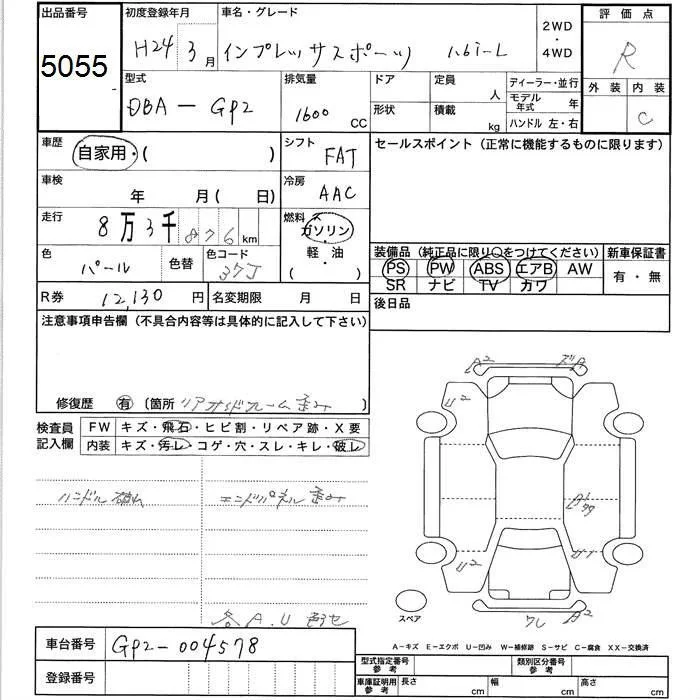 出品番号 初度登録年月 車名・グレード 2WD・4WD 評価点
5055 H24 3月 インプレッサスポーツ 1.6i-L R
型式 排気量 ドア 定員 人 ディーラー・並行 外装 内装
DBA-GP2 1600 CC 形状 積載 kg モデル年式 年 C
ハンドル 左・右
車歴 自家用・( ) シフト FAT セールスポイント (正常に機能するものに限ります)
車検 年 月( 日) 冷房 AAC
走行 8万3千876km 燃料 ガソリン・軽・油( )
色 パール 色替 色コード 37J 装備品 (純正品に限り○をつけてください) 新車保証書
PS PW ABS エアB AW 有・無
SR ナビ TV カワ
R券 12,130円 名変期限 月 日 後日品
注意事項申告欄 (不具合内容等は具体的に記入して下さい)
修復歴 有 〔箇所 リアサイドフレーム歪み 〕
検査員記入欄 FW キズ・飛石・ヒビ割・リペア跡・X要
内装 キズ・汚レ・コゲ・穴・スレ・キレ・破レ
ハンドル破れ エンドパネル歪み
各A.U
A2
U2
U2
U1
A2
ワレ
スペア
A-キズ E-エクボ U-凹み W-補修跡 S-サビ C-腐食 XX-交換済
車台番号 GP2-004578
登録番号
型式指定番号 参考 類別区分番号 参考
車庫証明用 参考 長さ cm 幅 cm 高さ cm